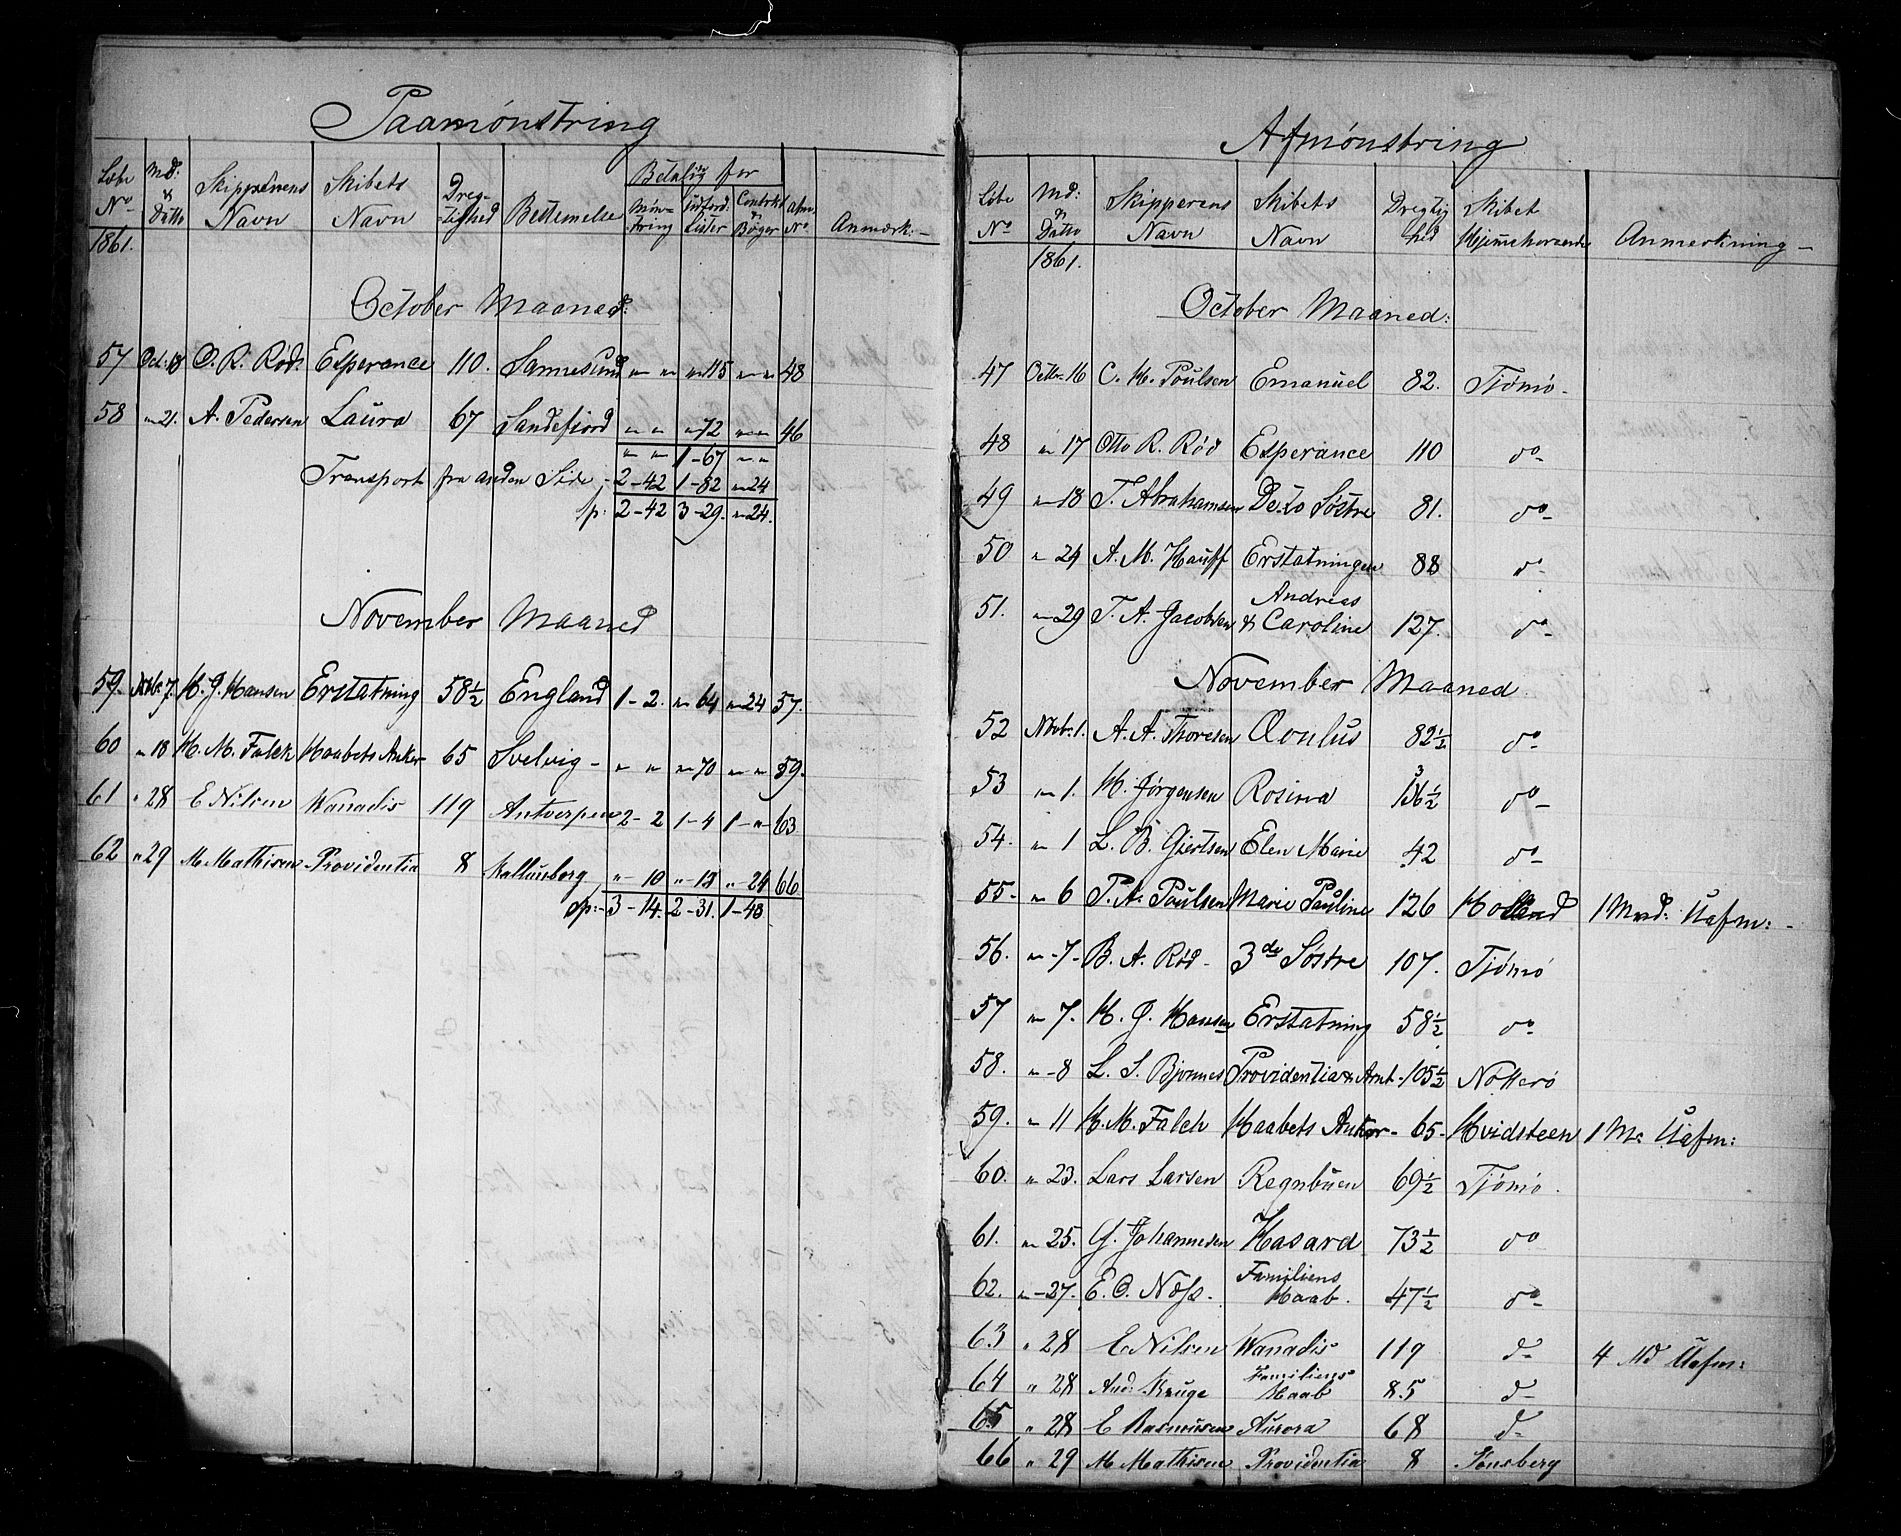 Paamönstring
Löbe No | Md: & Datto | Skipperens Navn | Skibets Navn | Dreg-tighed | Bestemelse | Betaling for | Mön-string | Lister | Contrkt & Böger | Afm. No | Anmærk:
1861.
October Maaned:
57 Oct: 18 O. R. Röd: Esperance 110. Sannesund " " " 115 " " 48
58 " 21. A. Pedersen Laura 67 Sandefjord " " " 72 " " 46
" " 1-67 " "
Transport fra anden Side - 2-42 1-82 " 24
Sp: 2-42 3-29. " 24.
November Maaned
59. Novbr 7. H. J. Hansen Erstatning 58½ England 1-2. " 64 " 24 57.
60 " 18 H. M. Falck Haabets Anker 65 Svelvig - " " " 70 " " 59.
61 " 28 E Nilsen Wanadis 119 Antverpen 2-2 1-4 1-" 63
62 " 29 M Mathisen Providentia 8 Kallunborg "-10 "-13 " 24 66
Sp:- 3-14. 2-31. 1-48
Afmönstring
Löbe No | Md: & Datto | Skipperens Navn | Skibets Navn | Dregtig hed | Skibet Hjemmehörende | Anmerkning -
1861.
October Maaned:
47 Octbr. 16 C. H. Poulsen Emanuel 82. Tjömö-
48 " 17 Otto R. Röd Esperance 110 do-
49 " 18 T. Abrahamsen De to Söstre 81. do-
50 " 24 A. M. Hauff Erstatningen 88 do-
51. " 29 T. A. Jacobsen Andreas & Caroline 127. do-
November Maaned
52 Novbr. 1. A. A. Thoresen Æoulus 82½ do-
53 " 1. H. Jörgensen Rosina 136½ do-
54. " 1 L. B. Gjertsen Elen Marie 42 do-
55- " 6 P. A. Paulsen Marie Pauline 126 Holland 1 Mnd: Uafm: -
56. " 7- B. A. Röd - 3de Söstre 107. Tjömö
57 " 7. H. J. Hansen Erstatning 58½ do-
58. " 8 L. S. Bjonnes Providentia & Arnt - 105½ Nötterö
59. " 11 H. M. Falch Haabets Anker - 65- Hvidsteen 1 M: Uafm:
60. " 23. Lars Larsen Regnbuen 69½ Tjömö.
61. " 25. G. Johannesen Hasard 73½ do
62. " 27. E. O. Næss. Familiens Haab. 47½ do-
63 " 28 E Nilsen Wanadis 119 do- 4 Md Uafm:
64 " 28 And: Kruge Familiens Haab 85 do-
65 " 28 E Rasmussen Aurora 68 do-
66 " 29 M Mathisen Providentia 8 Tönsberg